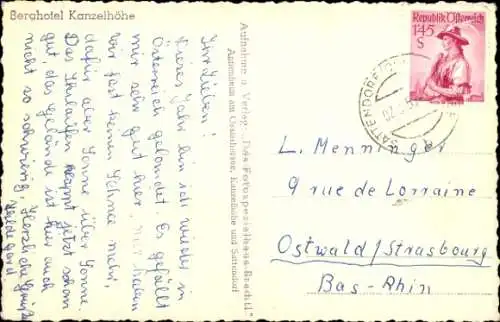 Berghotel Kanzelhöhe
Ihr Lieben!
Dieses Jahr bin ich wieder in
Österreich gelandet. Es gefällt
mir sehr gut hier, nur haben
wir fast keinen Schnee mehr,
dafür aber Sonne über Sonne.
Das Skilaufen klappt jetzt schon
gut, das Gelände ist hier auch
nicht so schwierig. Herzliche Grüße
Hildegard
Aufnahme u. Verlag: Das Fotospezialhaus
Annenheim am Ossiachersee, Kanzelhöhe und Sattendorf
Republik Österreich
1.45
S
SATTENDORF
L. Menninger
9 rue de Lorraine
Ostwald/Strasbourg
Bas-Rhin